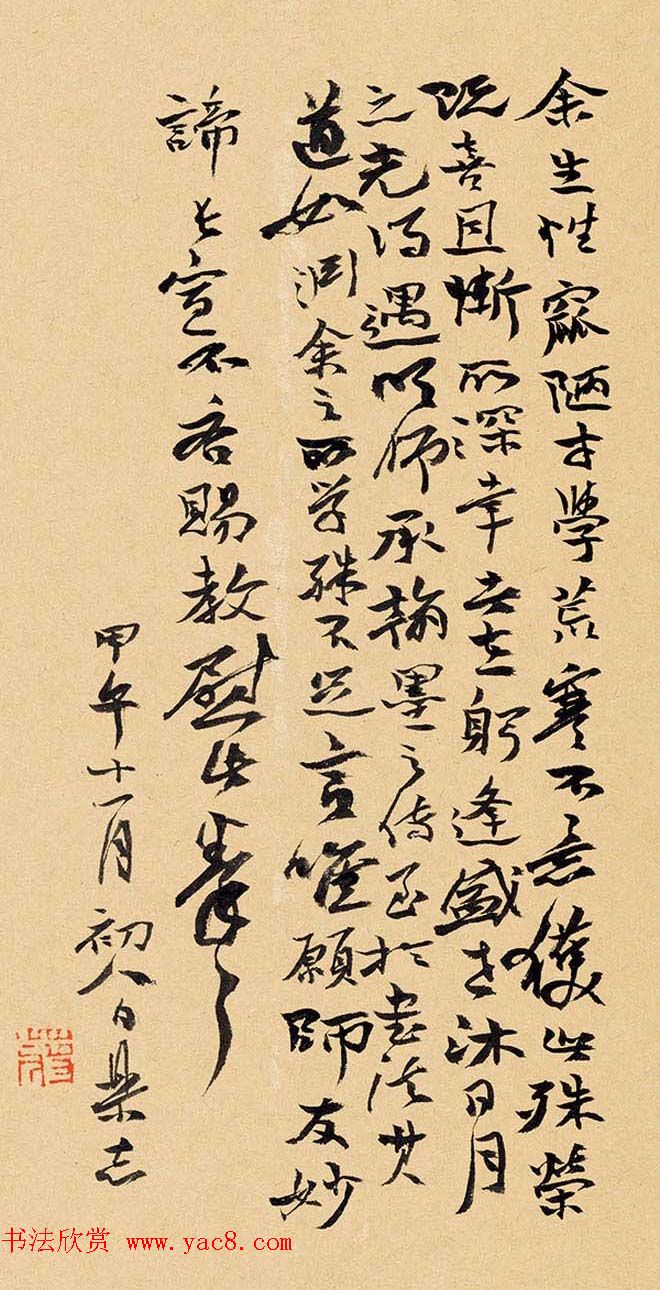 余生性窳陋才學荒寒不意獲此殊榮
既喜且慚所深幸者在躬逢盛世沐日月
之光得遇明師承翰墨之傳至於書法其
道如渊余之所学殊不足言唯願師友妙
諦长宣不吝賜教慰此拳〻
甲午十一月初八日志
书法欣赏 www.yac8.com